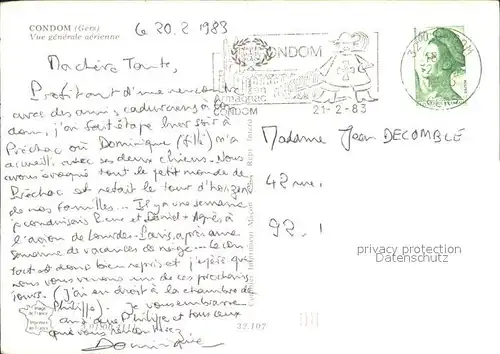 CONDOM (Gers)
Vue générale aérienne
le 20.2 1983
Ma chère Tante,
Profitant d'une rencontre
avec des amis cadurciens à Con
dom, j'ai fait étape hier soir à
Préchac où Dominique (fille) m'a
accueilli avec ses deux chiens. Nous
avons évoqué tout le petit monde de
Préchac et refait le tour d'horizon
de nos familles... Il y a une semaine
je conduisais Anne et Daniel-Agnès à
l'avion de Lourdes-Paris, après une
semaine de vacances de neige... Le con
tact est donc bien repris et j'espère que
nous vous verrons un de ces prochains
jours. (J'ai eu droit à la chambre de
Philippe). Je vous embrasse
ainsi que Philippe et tous ceux
que vous
Dominique
CONDOM
ARMAGNAC
CONDOM
21-2-83
Madame Jean DECOMBLE
42 rue
92.
privacy protection
Datenschutz
Image de France
Imprimé en France
32.107